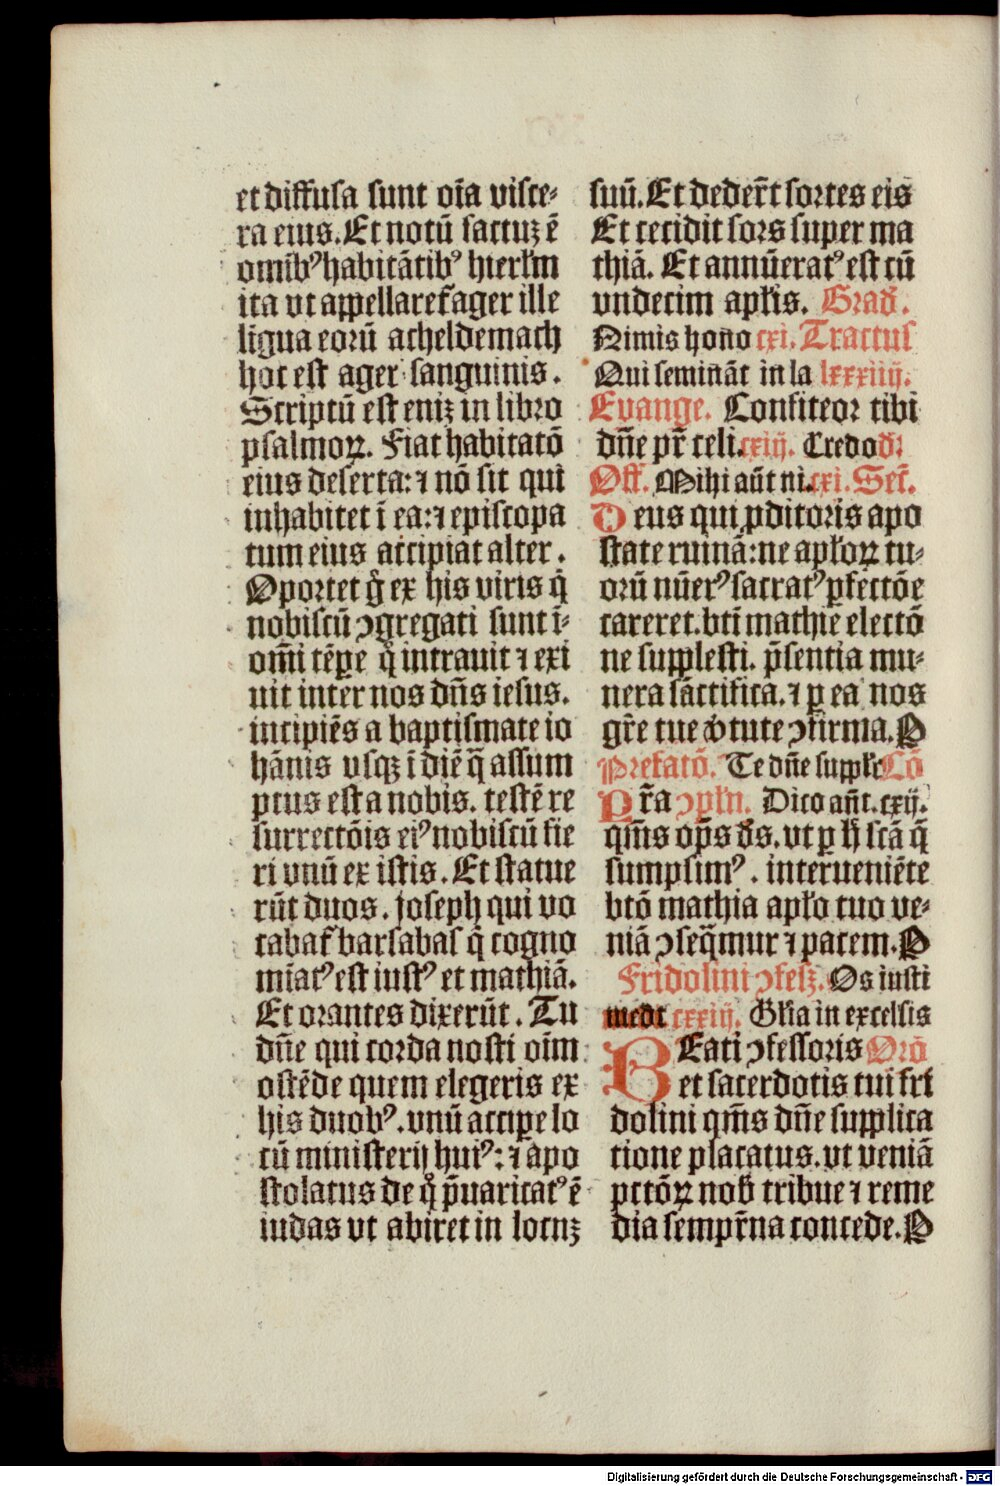 et diffusa sunt oīa visce⸗
ra eius. Et notū factuꝫ ē
omībꝰ habitātibꝰ hierłm
ita vt appellaret᷑ ager ille
ligua eorū acheldemach
hoc est ager sanguinis.
Scriptū est eniꝫ in libro
psalmoꝝ. Fiat habitatō
eius deserta: ⁊ nō sit qui
inhabitet ī ea: ⁊ episcopa
tum eius accipiat alter.
Oportet g̊ ex his viris q̇
nobiscū ꝯgregati sunt ī⸗
om̄i tēꝑe q̊ intrauit ⁊ exi
uit inter nos dn̄s iesus.
incipiēs a baptismate io
hānis vsqꝫ ī diē q̄ assum
ptus est a nobis. testē re
surrectōis eiꝰ nobiscū fie
ri vnū ex istis. Et statue
rūt duos. ioseph qui vo
cabat᷑ barsabas q̇ cogno
mīatꝰ est iustꝰ et mathiā.
Et orantes dixerūt. Tu
dn̄e qui corda nosti oīm
ostēde quem elegeris ex
his duobꝰ. vnū accipe lo
cū ministerij huiꝰ: ⁊ apo
stolatus de q̊ p̄uaricatꝰ ē
iudas vt abiret in locuꝫ
suū. Et deder̄t sortes eis
Et cecidit sors super ma
thiā. Et annūeratꝰ est cū
vndecim apłis. Grad̄.
Nimis hono cxi. Tractus
Qui semināt in la lxxxiiij.
Euange. Confiteor tibi
dn̄e pr̄ celi. cxiij. Credo dr̄
Off. Mihi aūt ni. cxi. Secr̄.
Deus qui ꝓditoris apo
state ruinā: ne apłoꝝ tu⸗
orū nūerꝰ sacratꝰ ꝑfectōe
careret. bt̄i mathie electō
ne supplesti. p̄sentia mu⸗
nera sāctifica. ⁊ ꝑ ea nos
gr̄e tue v̓tute ꝯfirma. P
Prefatō. Te dn̄e supplr̄ Cō
Pr̄a ꝯpln̄. Dico aūt. cxij.
qm̄s op̄s ds̄. vt ꝑ h̄ scā q̄
sumpsimꝰ. interueniēte
btō mathia apło tuo ve⸗
niā ꝯseq̄mur ⁊ pacem. P
Fridolini ꝯfesꝫ. Os iusti
medt cxxiij. Glīa in excelsis
Beati ꝯfessoris Orō
et sacerdotis tui fri
dolini qm̄s dn̄e supplica
tione placatus. vt veniā
pctōꝝ nob̄ tribue ⁊ reme
dia sempr̄na concede. P
Digitalisierung gefördert durch die Deutsche Forschungsgemeinschaft - DFG